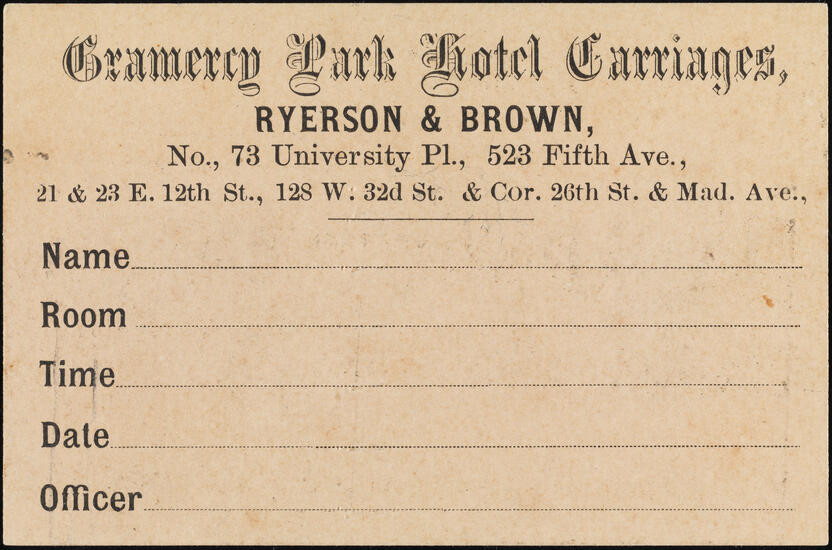 Gramercy Park Hotel Carriages,
RYERSON & BROWN,
No., 73 University Pl., 523 Fifth Ave.,
21 & 23 E. 12th St., 128 W. 32d St. & Cor. 26th St. & Mad. Ave.,
Name
Room
Time
Date
Officer